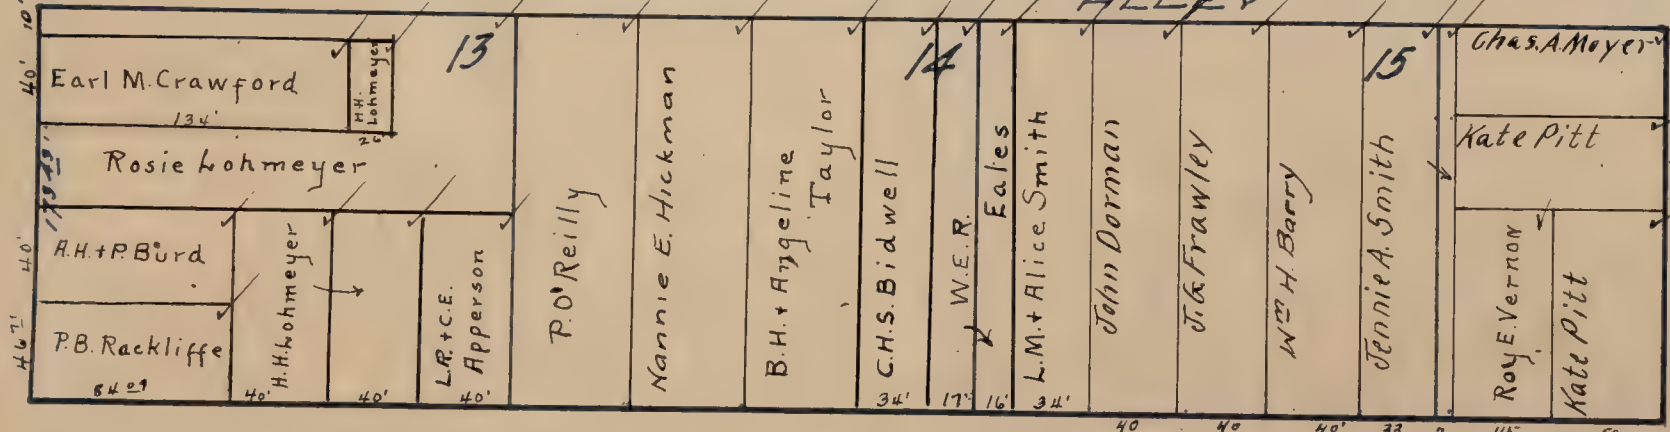 ALLEY
10'
40'
173 49'
40'
467'
13
14
15
Earl M. Crawford
134'
H.H. Lohmeyer
26
Rosie Lohmeyer
A.H. + P. Burd
P.B. Rackliffe
84 01
H.H. Lohmeyer
40'
40'
L.R. + C.E. Apperson
40'
P. O'Reilly
Nannie E. Hickman
B.H. + Angeline Taylor
C.H.S. Bidwell
34'
W.E.R. Eales
17'
16'
L.M. + Alice Smith
34'
John Dorman
40
J.G. Frawley
40
Wm H. Barry
40'
Jennie A. Smith
33
Chas. A. Moyer
Kate Pitt
Roy E. Vernon
Kate Pitt